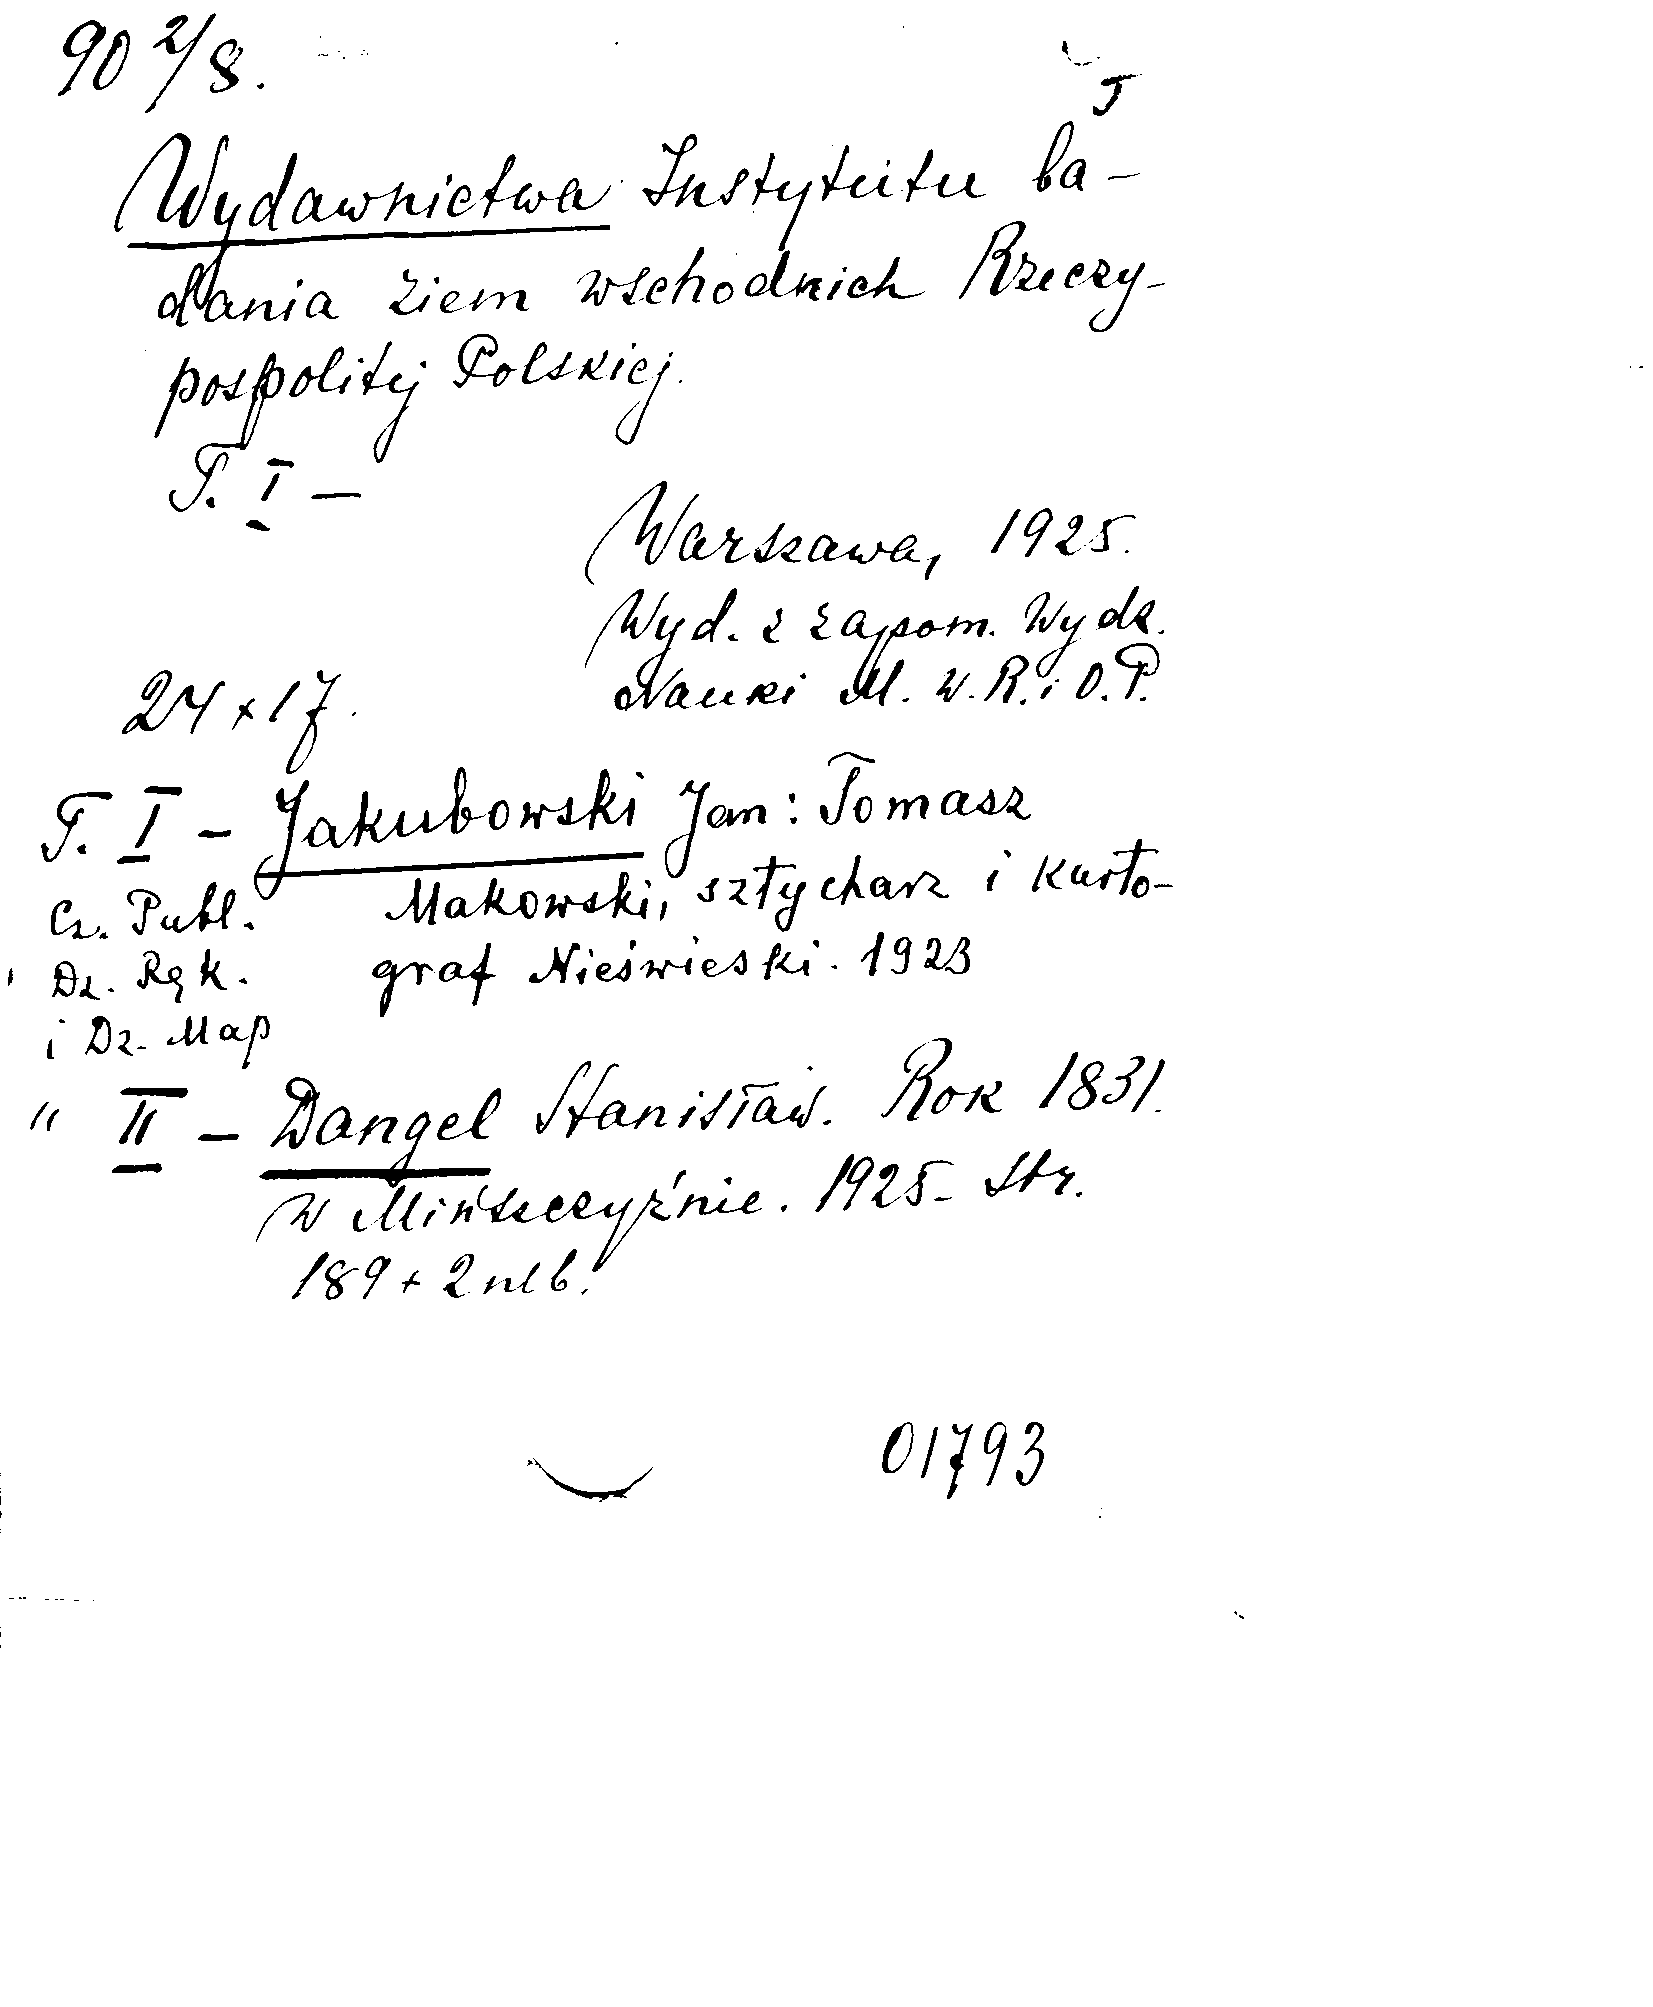 90 2/8.
J
Wydawnictwa Instytutu ba-
dania ziem wschodnich Rzeczy-
pospolitej Polskiej.
T. I —
Warszawa, 1925.
Wyd. z zapom. Wydz.
Nauki M. W. R. i O. P.
24 x 17.
T. I — Jakubowski Jan: Tomasz
Makowski, sztycharz i karto-
graf Nieświeski. 1923
Cz. Publ.
Dz. Ręk.
i Dz. Map
" II — Dangel Stanisław. Rok 1831.
w Mińszczyźnie. 1925 - Str.
189 + 2 nlb.
01793